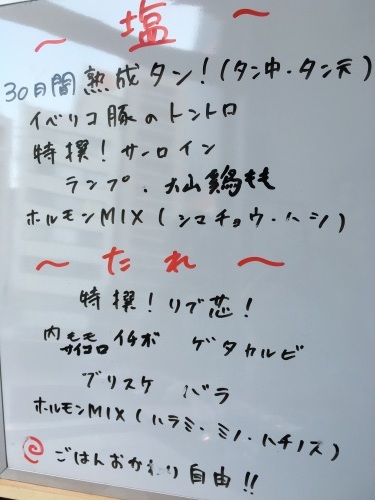 ～塩～
30日間熟成タン！(タン中・タン元)
イベリコ豚のトントロ
特撰！サーロイン
ランプ、大山鶏もも
ホルモンMIX(シマチョウ・ハシ)
～たれ～
特撰！リブ芯！
内モモサイコロ イチボ ゲタカルビ
ブリスケ バラ
ホルモンMIX(ハラミ・ミノ・ハチノス)
ごはんおかわり自由!!